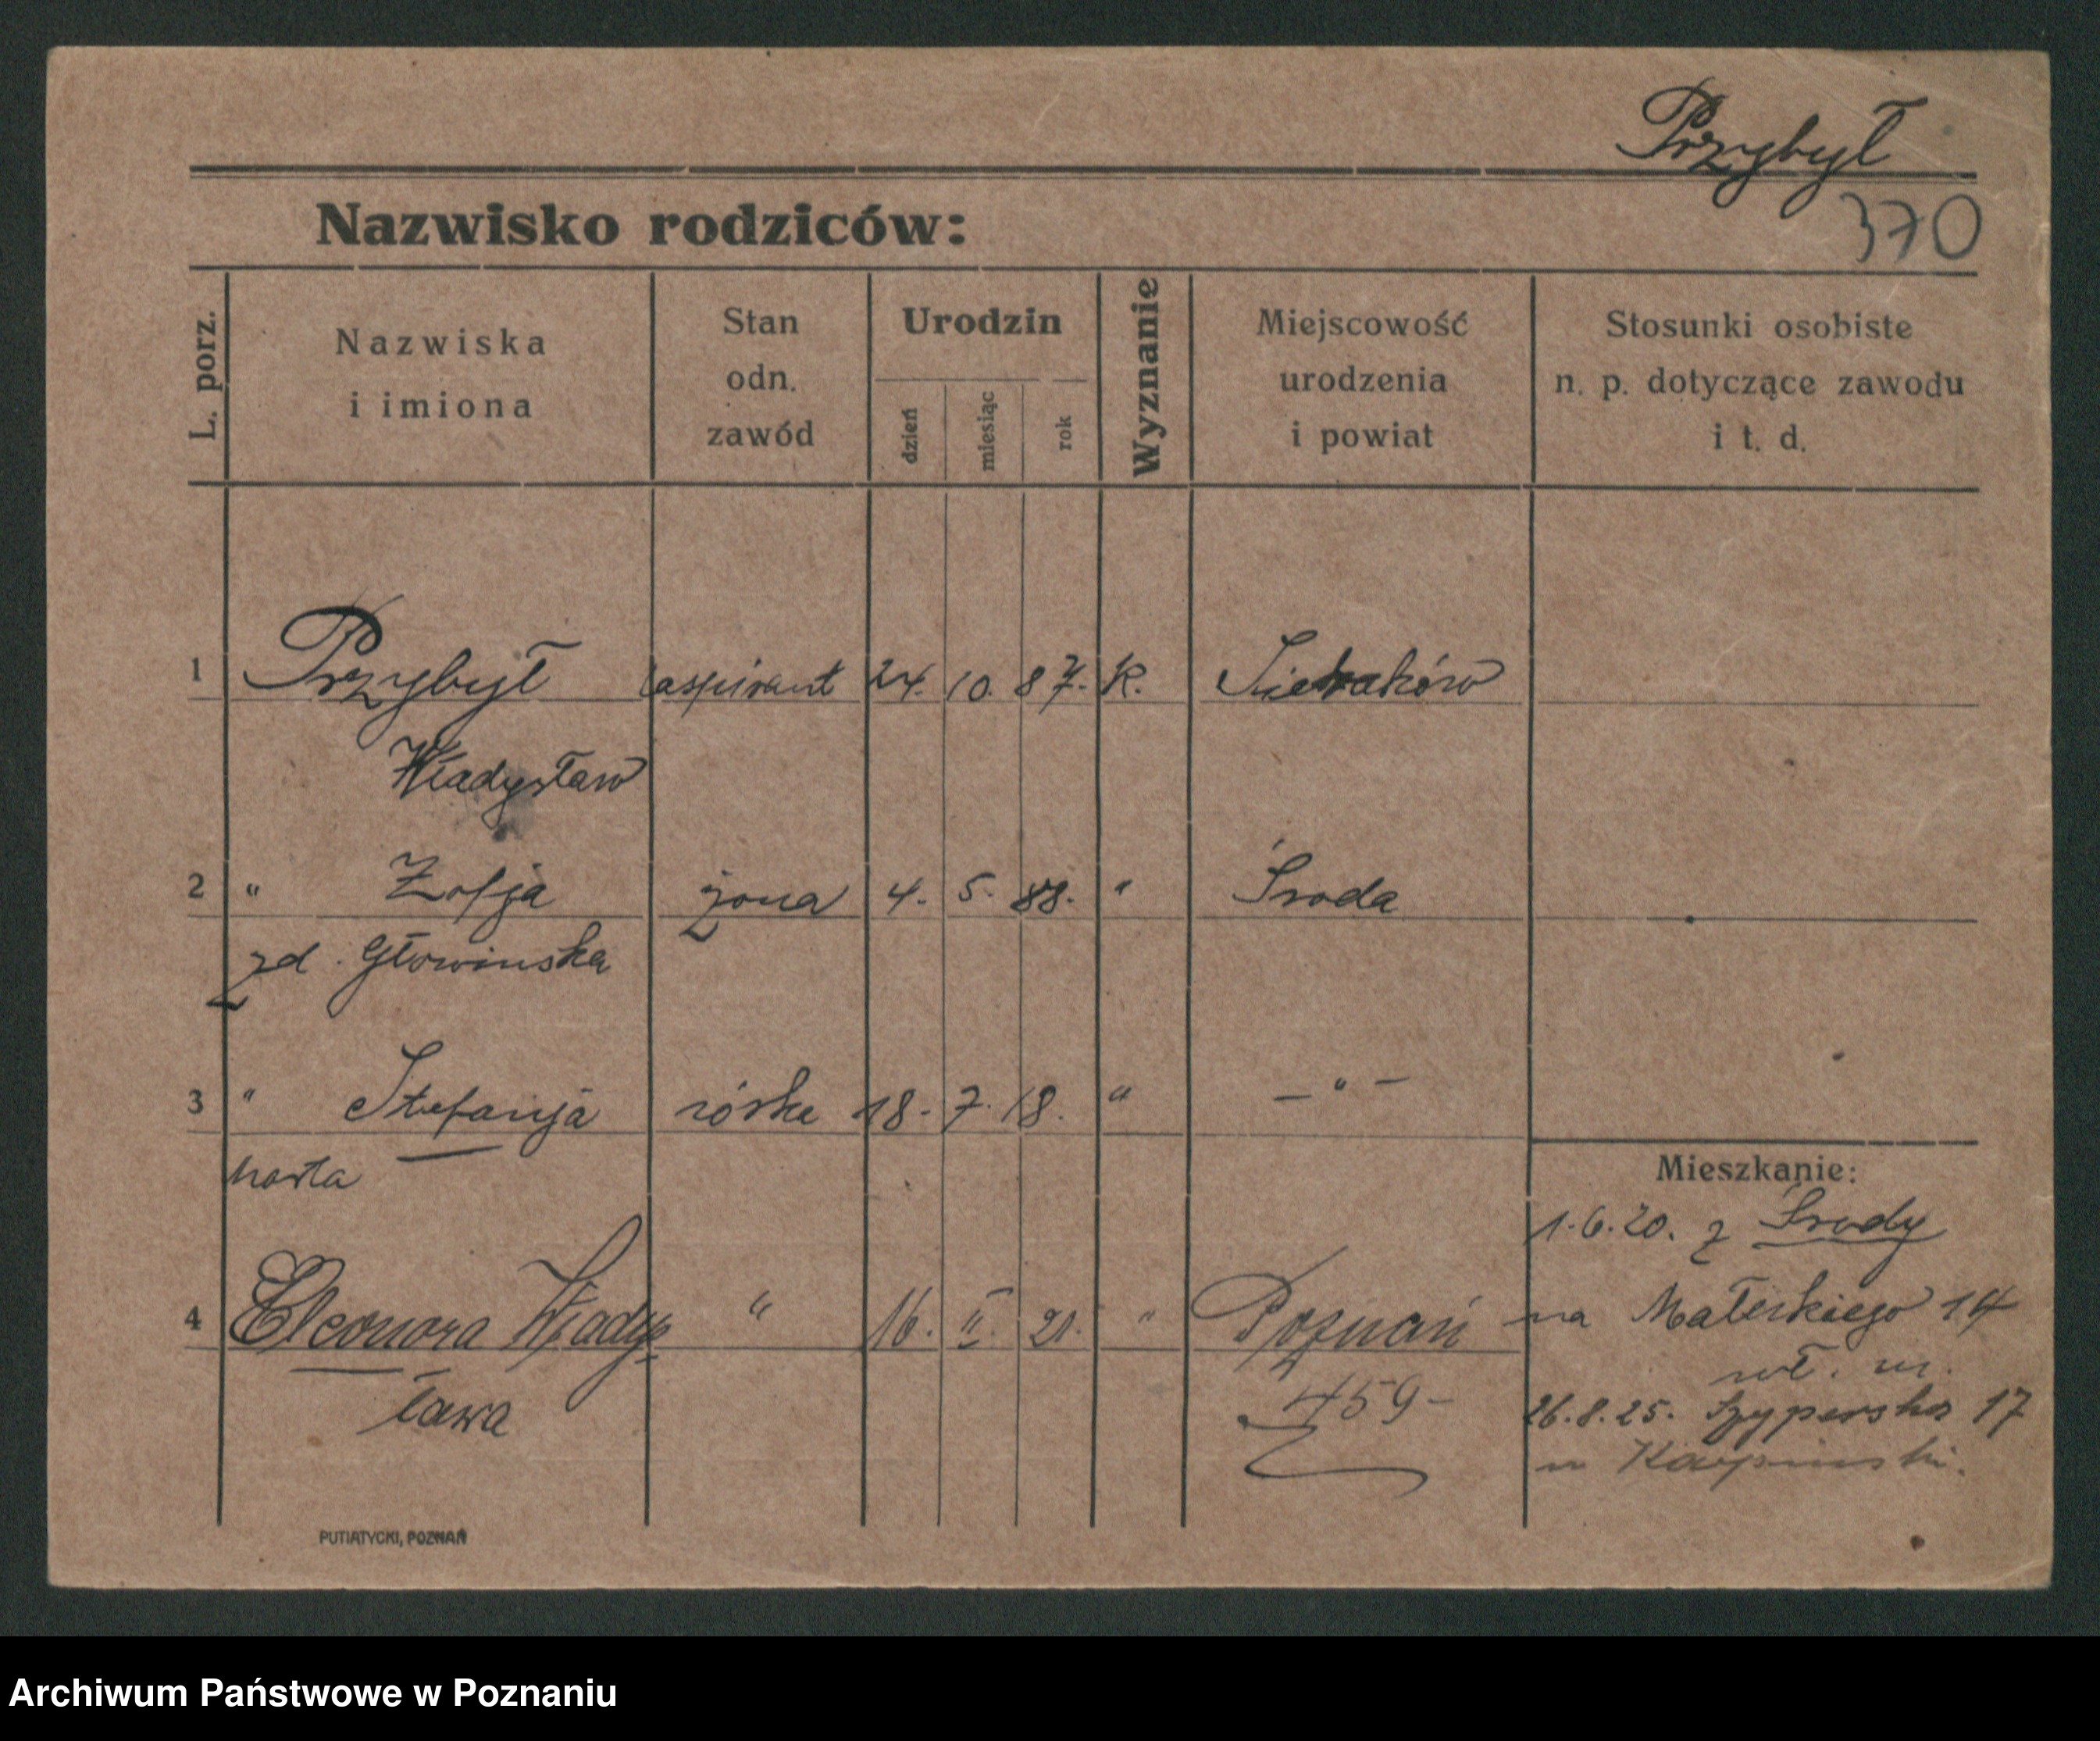 Przybył
Nazwisko rodziców:
370
L. porz.
Nazwiska
i imiona
Stan
odn.
zawód
Urodzin
dzień
miesiąc
rok
Wyznanie
Miejscowość
urodzenia
i powiat
Stosunki osobiste
n. p. dotyczące zawodu
i t. d.
1 Przybył aspirant 24. 10. 87. K. Sieraków
Władysław
2 " Zofja żona 4. 5. 88. " Środa
zd. Głowinska
3 " Stefanja córka 18. 7. 18. " — " —
Marta
Mieszkanie:
1.6.20. z Środy
4 Eleonora Włady- " 16. II. 21. " Poznań
na Małeckiego 14
wł. m.
sława
459-
26.8.25. Szyperska 17
u Karpinski.
PUTIATYCKI, POZNAŃ
Archiwum Państwowe w Poznaniu